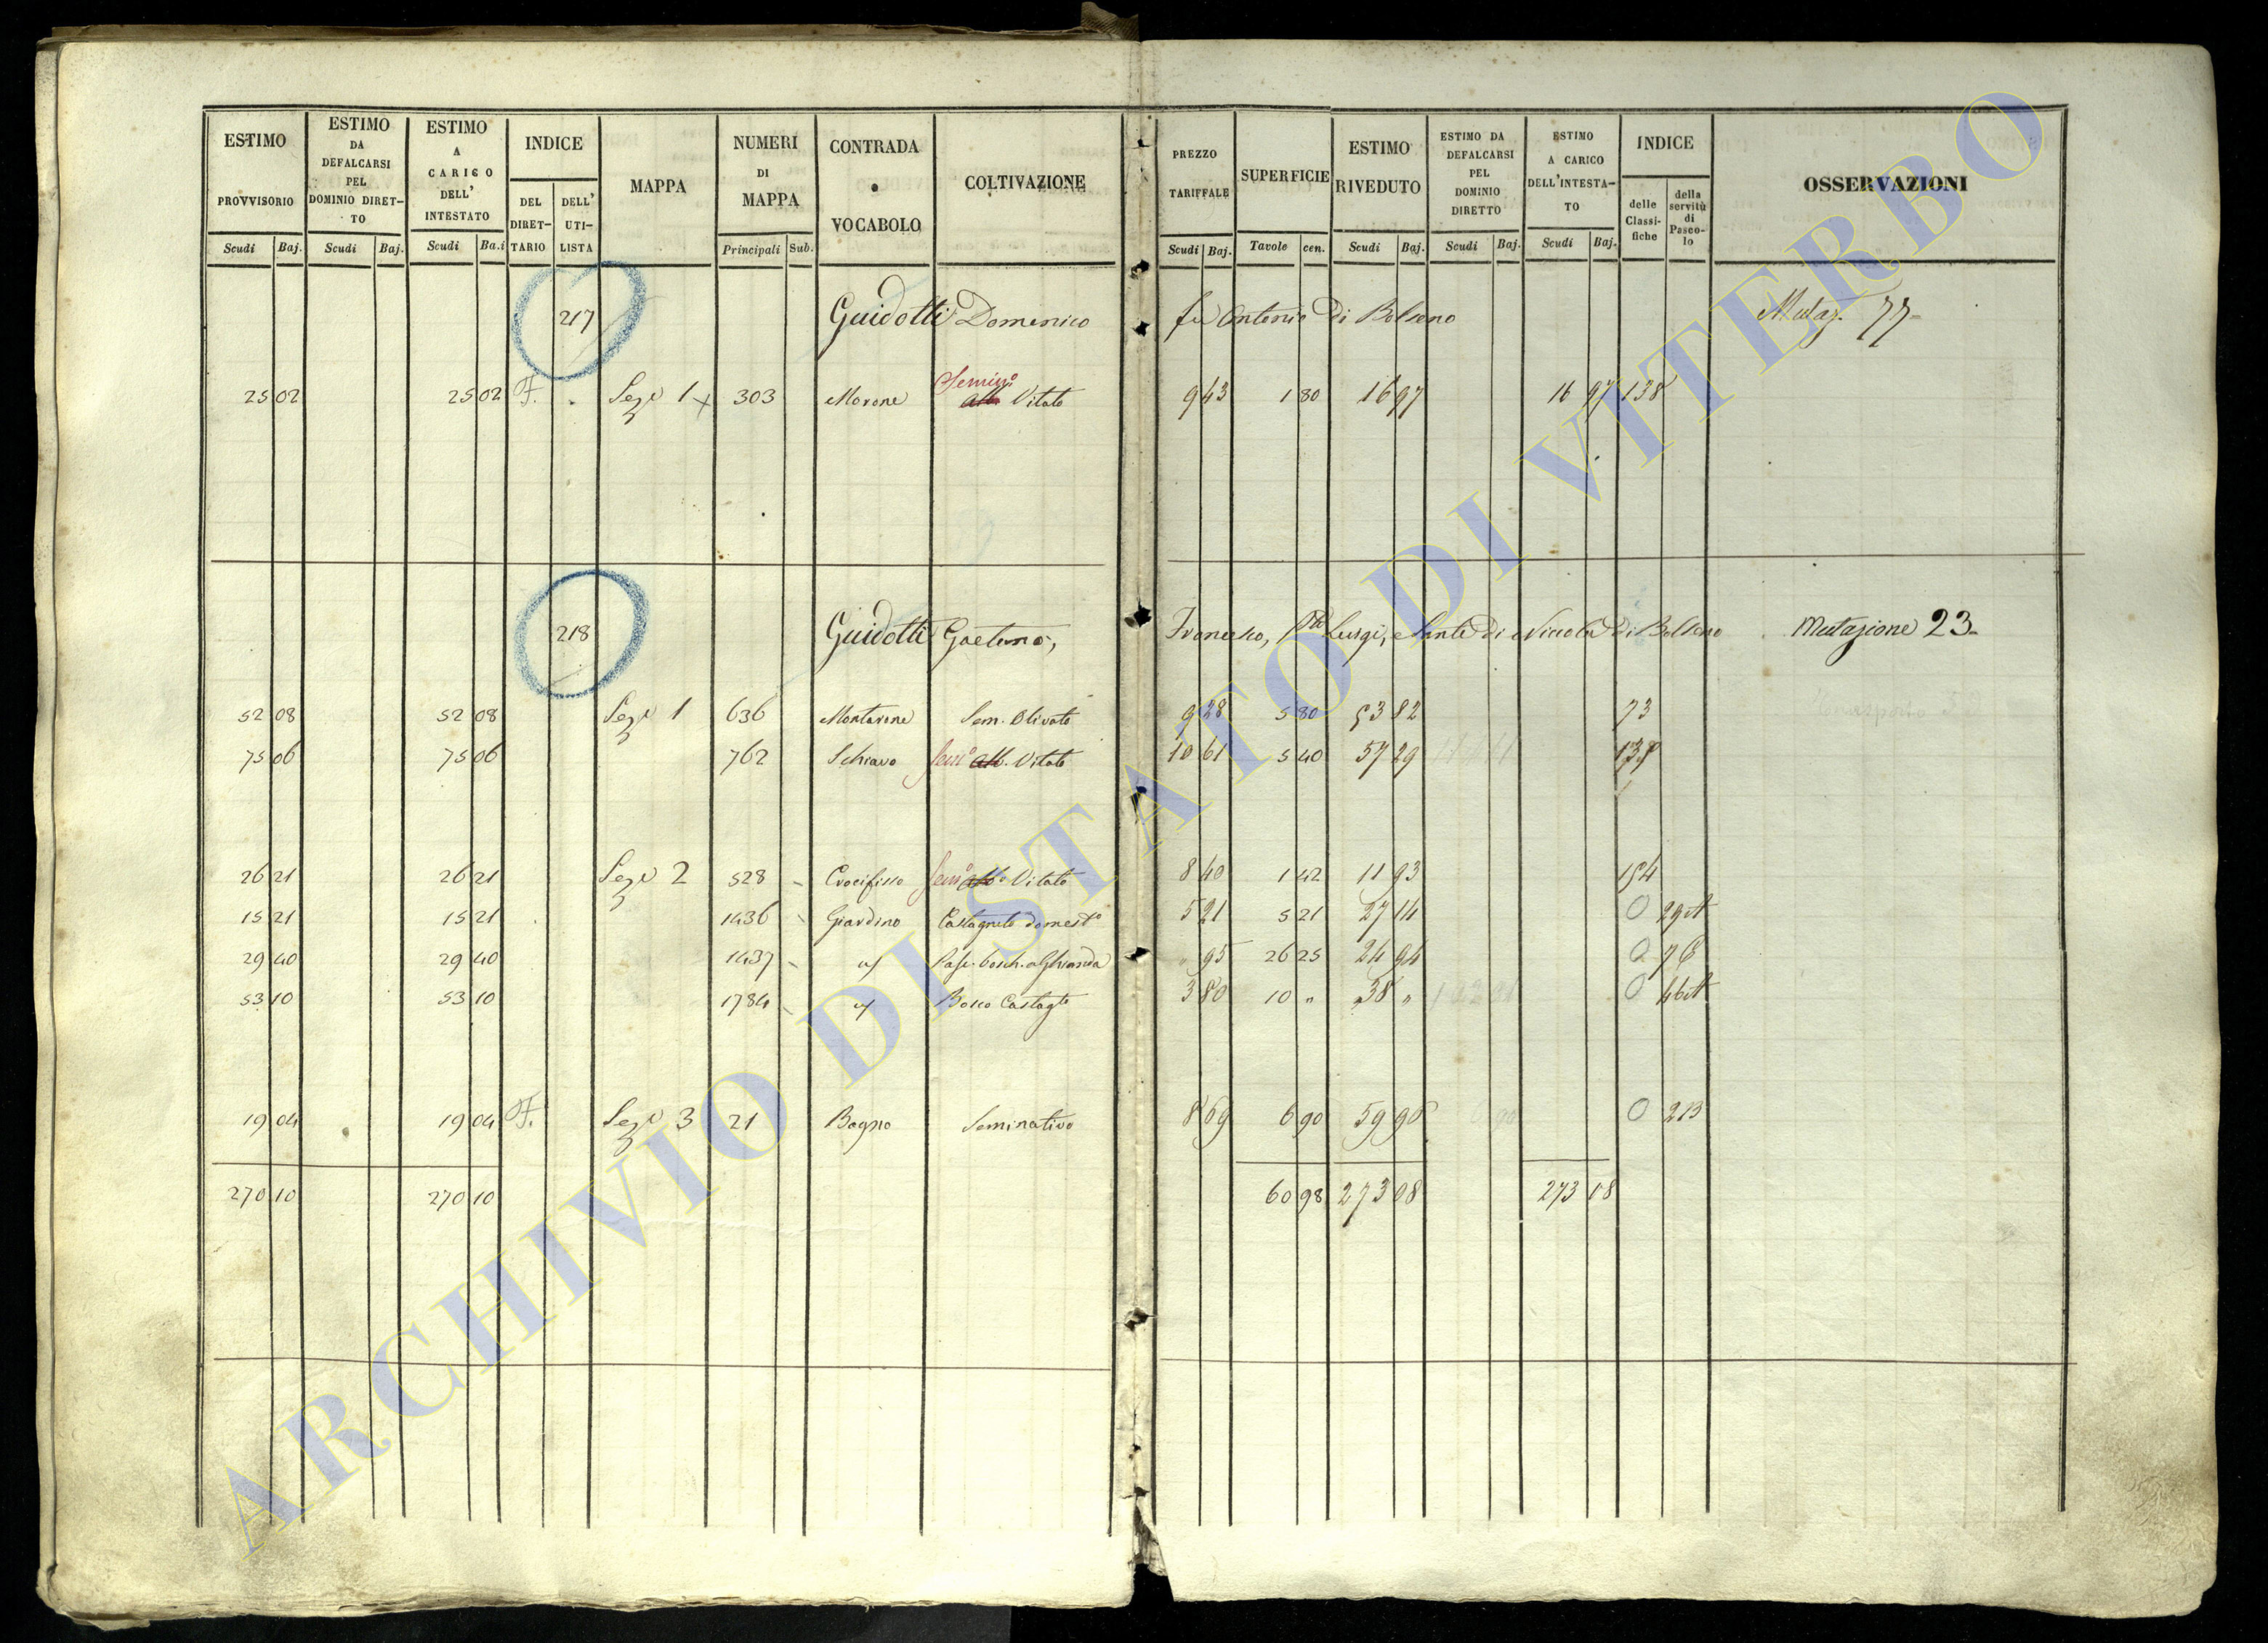 ESTIMO PROVVISORIO ESTIMO DA DEFALCARSI PEL DOMINIO DIRETTO ESTIMO A CARICO DELL' INTESTATO INDICE MAPPA NUMERI DI MAPPA CONTRADA o VOCABOLO COLTIVAZIONE PREZZO TARIFFALE SUPERFICIE ESTIMO RIVEDUTO ESTIMO DA DEFALCARSI PEL DOMINIO DIRETTO ESTIMO A CARICO DELL'INTESTATO INDICE OSSERVAZIONI
DEL DIRETTARIO DELL' UTILISTA delle Classifiche della servitù di Pascolo
Scudi Baj. Scudi Baj. Scudi Ba.i Principali Sub. Scudi Baj. Tavole cen. Scudi Baj. Scudi Baj. Scudi Baj.
217 Guidotti Domenico fu Antonio di Bolseno Mutaz. 77
25 02 25 02 F. Sez. 1 303 Morone Semin.o Vitato 9 43 1 80 16 97 16 97 138
218 Guidotti Gaetano, Francesco, Luigi, Sante di Niccola di Bolseno Mutazione 23
52 08 52 08 Sez. 1 636 Montarone Sem. Olivato 9 28 5 80 53 82 73
75 06 75 06 762 Schiavo Sem.o Vitato 10 61 5 40 57 29
26 21 26 21 Sez. 2 528 Crocifisso Sem.o Vitato 8 40 1 42 11 93 154
15 21 15 21 1436 Giardino Castagneto domest.o 5 21 5 21 27 14 0 29 A
29 40 29 40 1437 Pasc. bosch. a Ghianda " 95 26 25 24 94 0
53 10 53 10 1784 Bosco Castag.to 3 80 10 " 38 " 0 46 A
19 04 19 04 F. Sez. 3 21 Bagno Seminativo 8 69 6 90 59 96 0 2 B
270 10 270 10 60 98 273 08 273 08
ARCHIVIO DI STATO DI VITERBO